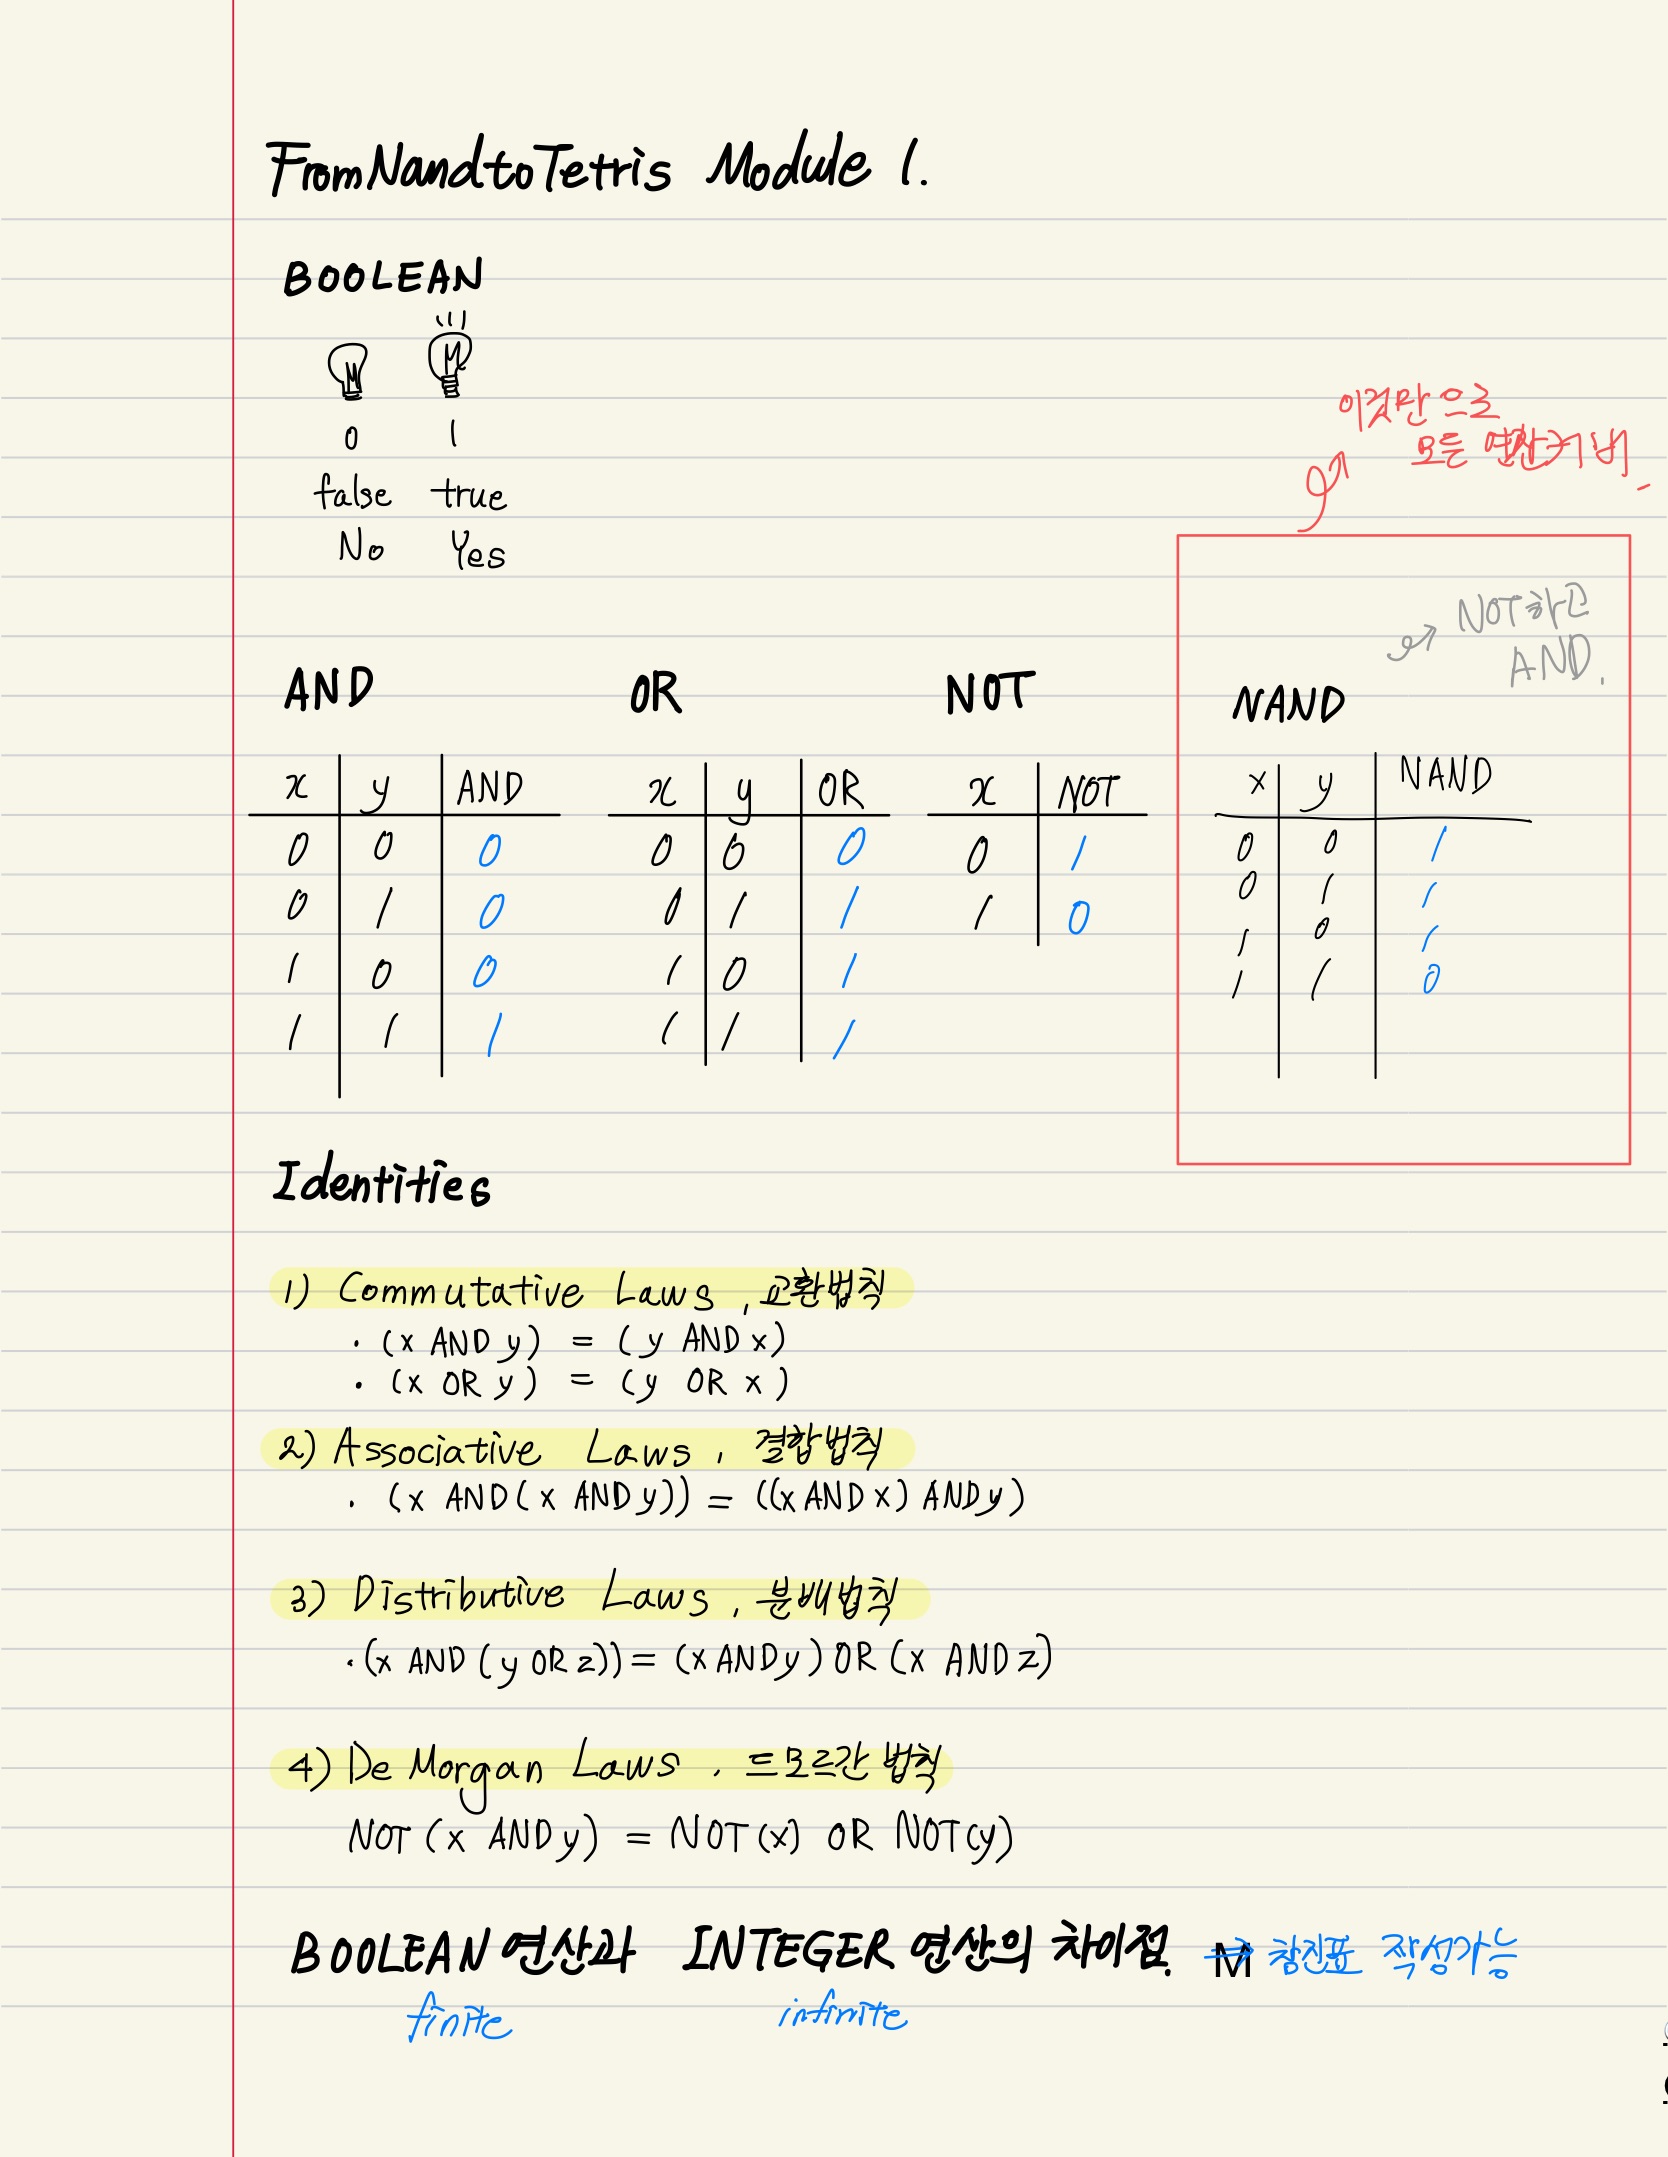 From Nand to Tetris Module 1.
BOOLEAN
0 1
false true
No Yes
이것만으로
모든 연산커버
NOT하고
AND.
AND OR NOT NAND
x y AND x y OR x NOT x y NAND
0 0 0 0 0 0 0 1 0 0 1
0 1 0 0 1 1 1 0 0 1 1
1 0 0 1 0 1 1 0 1
1 1 1 1 1 1 1 1 0
Identities
1) Commutative Laws, 교환법칙
· (x AND y) = (y AND x)
· (x OR y) = (y OR x)
2) Associative Laws, 결합법칙
· (x AND (x AND y)) = ((x AND x) AND y)
3) Distributive Laws, 분배법칙
· (x AND (y OR z)) = (x AND y) OR (x AND z)
4) De Morgan Laws, 드모르간 법칙
NOT (x AND y) = NOT (x) OR NOT (y)
BOOLEAN 연산과 INTEGER 연산의 차이점. M → 참진표 작성가능
finite infinite